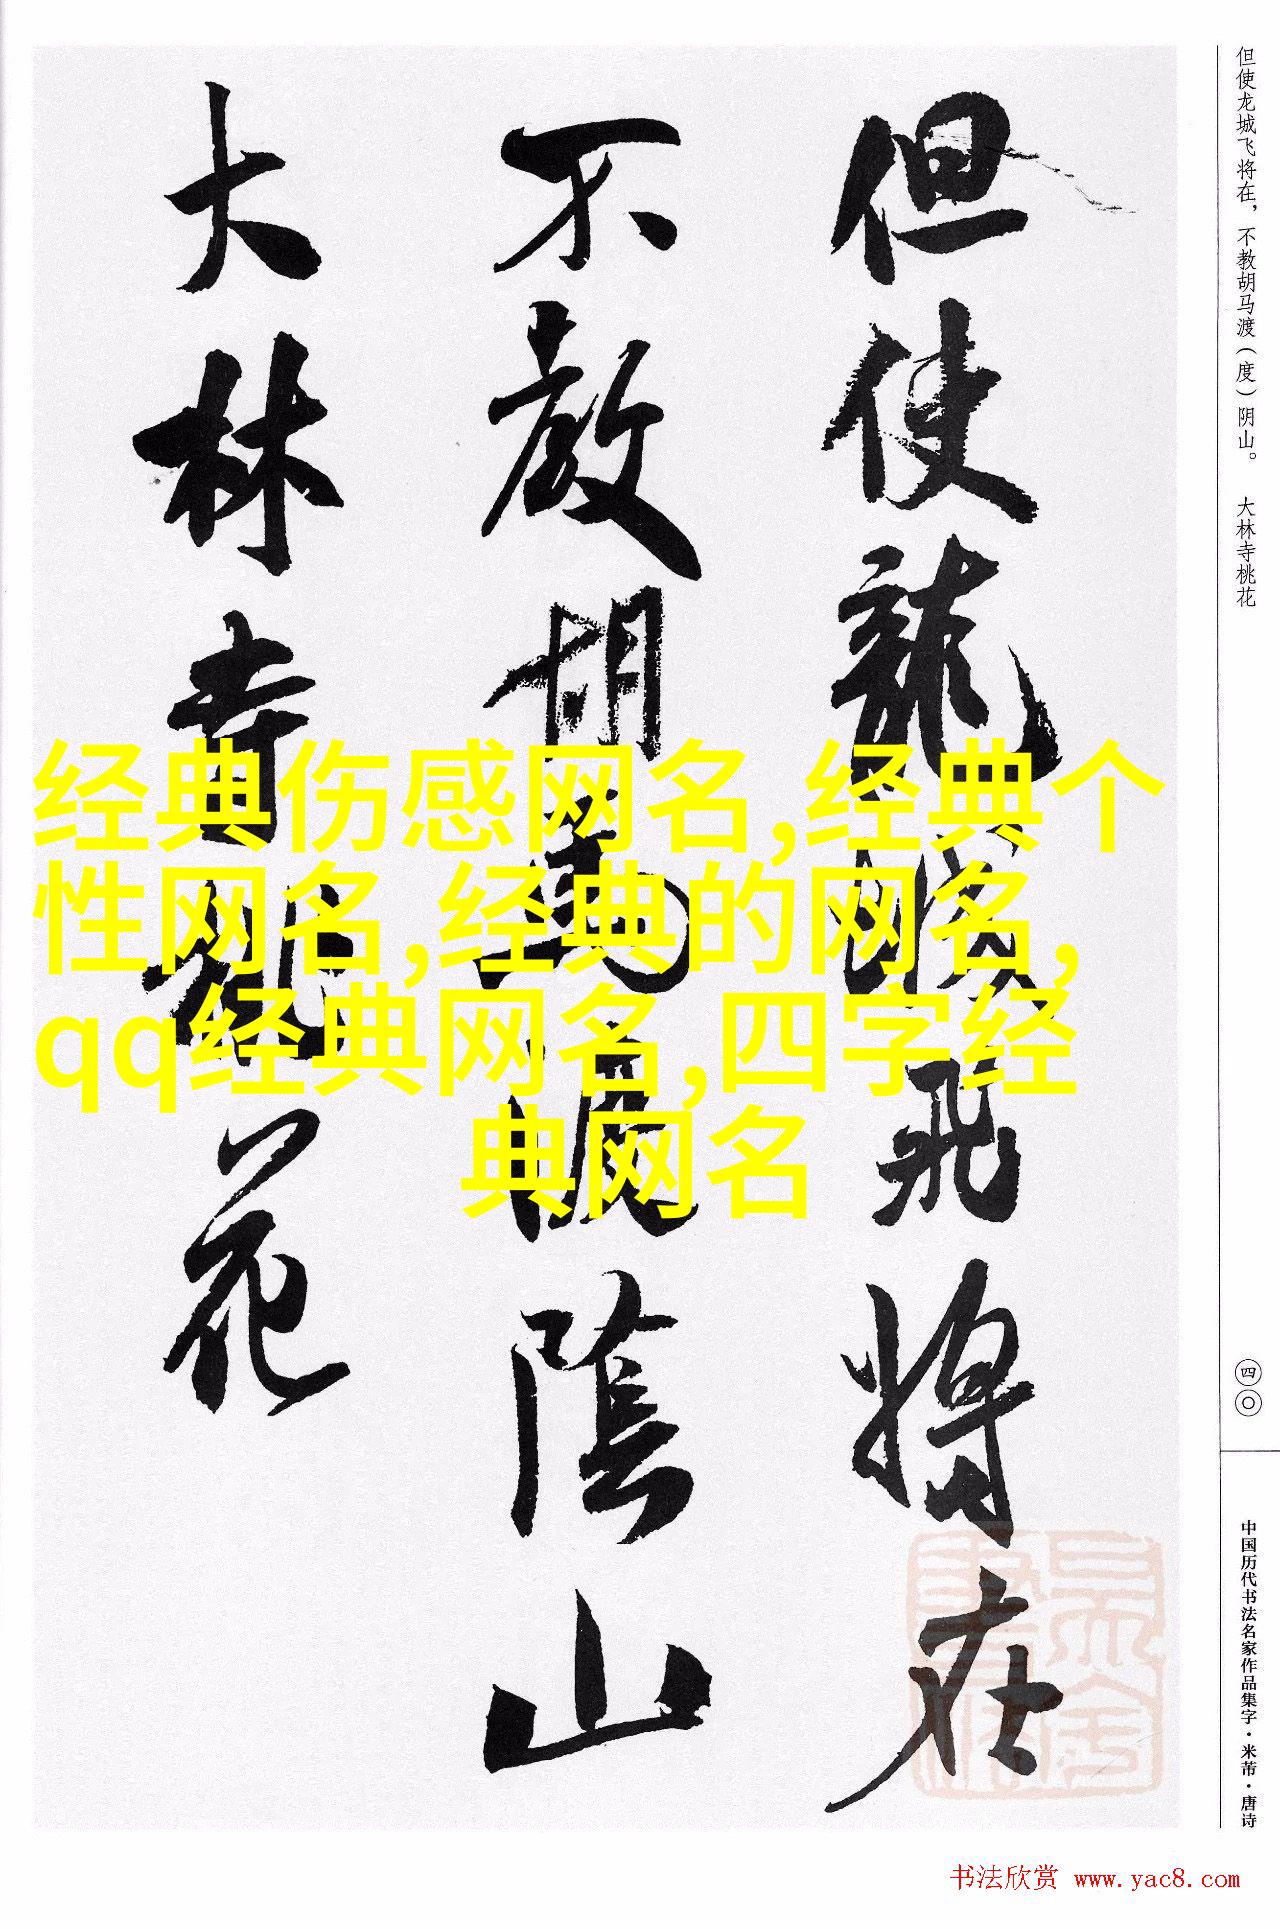 但使龙城飞将在，不教胡马渡（度）阴山。 大林寺桃花
但使龍城飛将在
不教胡馬渡陰山
大林寺桃花
经典伤感网名,经典个
性网名,经典的网名,
qq经典网名,四字经
典网名
四〇
中国历代书法名家作品集字·米芾·唐诗
书法欣赏 www.yac8.com